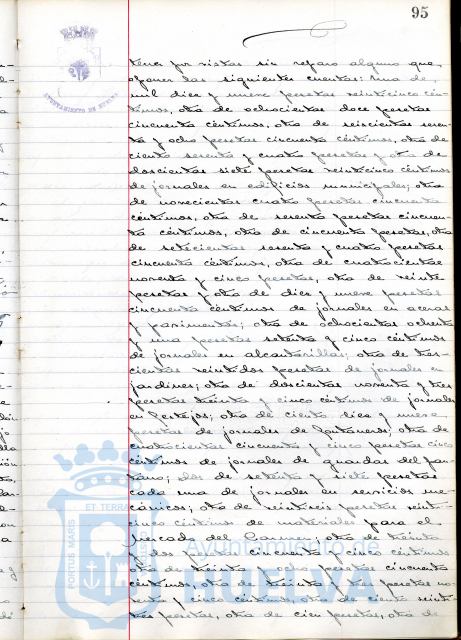 95
AYUNTAMIENTO DE HUELVA
tener por vistas sin reparo alguno que
oponer las siguientes cuentas: una de
mil diez y nueve pesetas veinticinco cén-
timos, otra de ochocientas doce pesetas
cincuenta céntimos, otra de seiscientas seten-
ta y ocho pesetas cincuenta céntimos, otra de
ciento sesenta y cuatro pesetas y otra de
doscientas siete pesetas veinticinco céntimos
de jornales en edificios municipales; otra
de novecientas cuatro pesetas cincuenta
céntimos, otra de sesenta pesetas cincuen-
ta céntimos, otra de cincuenta pesetas, otra
de setecientas sesenta y cuatro pesetas
cincuenta céntimos, otra de cuatrocientas
noventa y cinco pesetas, otra de veinte
pesetas y otra de diez y nueve pesetas
cincuenta céntimos de jornales en aceras
y pavimentos; otra de ochocientas ochenta
y una pesetas setenta y cinco céntimos
de jornales en alcantarillas; otra de tres-
cientas veintidos pesetas de jornales en
jardines; otra de doscientas noventa y tres
pesetas treinta y cinco céntimos de jornales
en Festejos; otra de ciento diez y nueve
pesetas de jornales de fontaneros; otra de
cuatrocientas cincuenta y cinco pesetas cinco
céntimos de jornales de guardas del pan-
tano; dos de setenta y siete pesetas
cada una de jornales en servicios me-
cánicos; otra de veintiseis pesetas veinti-
cinco céntimos de materiales para el
Mercado del Carmen, otra de treinta
y dos pesetas cincuenta y cinco céntimos
otra de treinta y ocho pesetas cincuenta
céntimos, otra de treinta y tres pesetas no-
venta y cinco céntimos, otra de ciento veinti-
tres pesetas, otra de cien pesetas, otra de
PORTUS MARIS
ET TERRAE
Ayuntamiento de
HUELVA